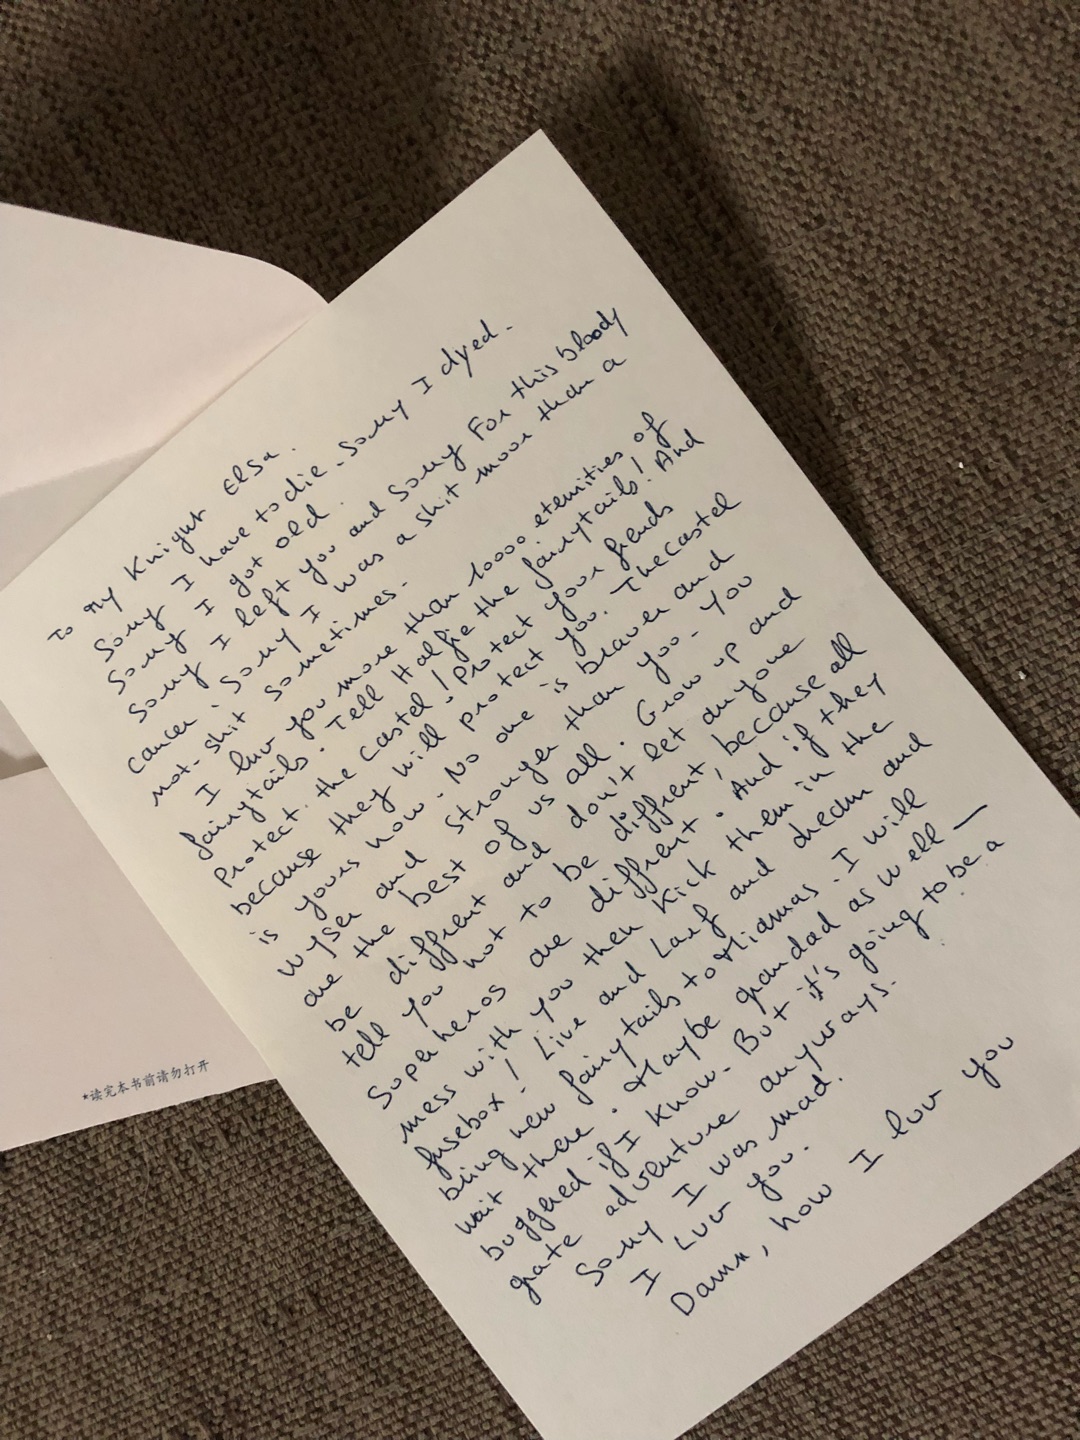 To my Knight Elsa.
Sorry I have to die. Sorry I dyed.
Sorry I got old.
Sorry I left you and sorry for this bloody
cancer. Sorry I was a shit moor than a
not-shit sometimes.
I luv you more than 10000 eternities of
fairytails. Tell Halfie the fairytails! And
protect the castel! Protect your friends
because they will protect you. The castel
is yours now. No one is braver and
wyser and stronger than you. You
are the best of us all. Grow up and
be diffrent and don't let anyone
tell you not to be diffrent, because all
superheros are diffrent. And if they
mess with you then kick them in the
fusebox! Live and Larf and dream and
bring new fairytails to Miamas. I will
wait there. Maybe grandad as well —
buggered if I know. But it's going to be a
grate adventure anyways.
Sorry I was mad.
I Luv you.
Damn, how I luv you
*读完本书前请勿打开